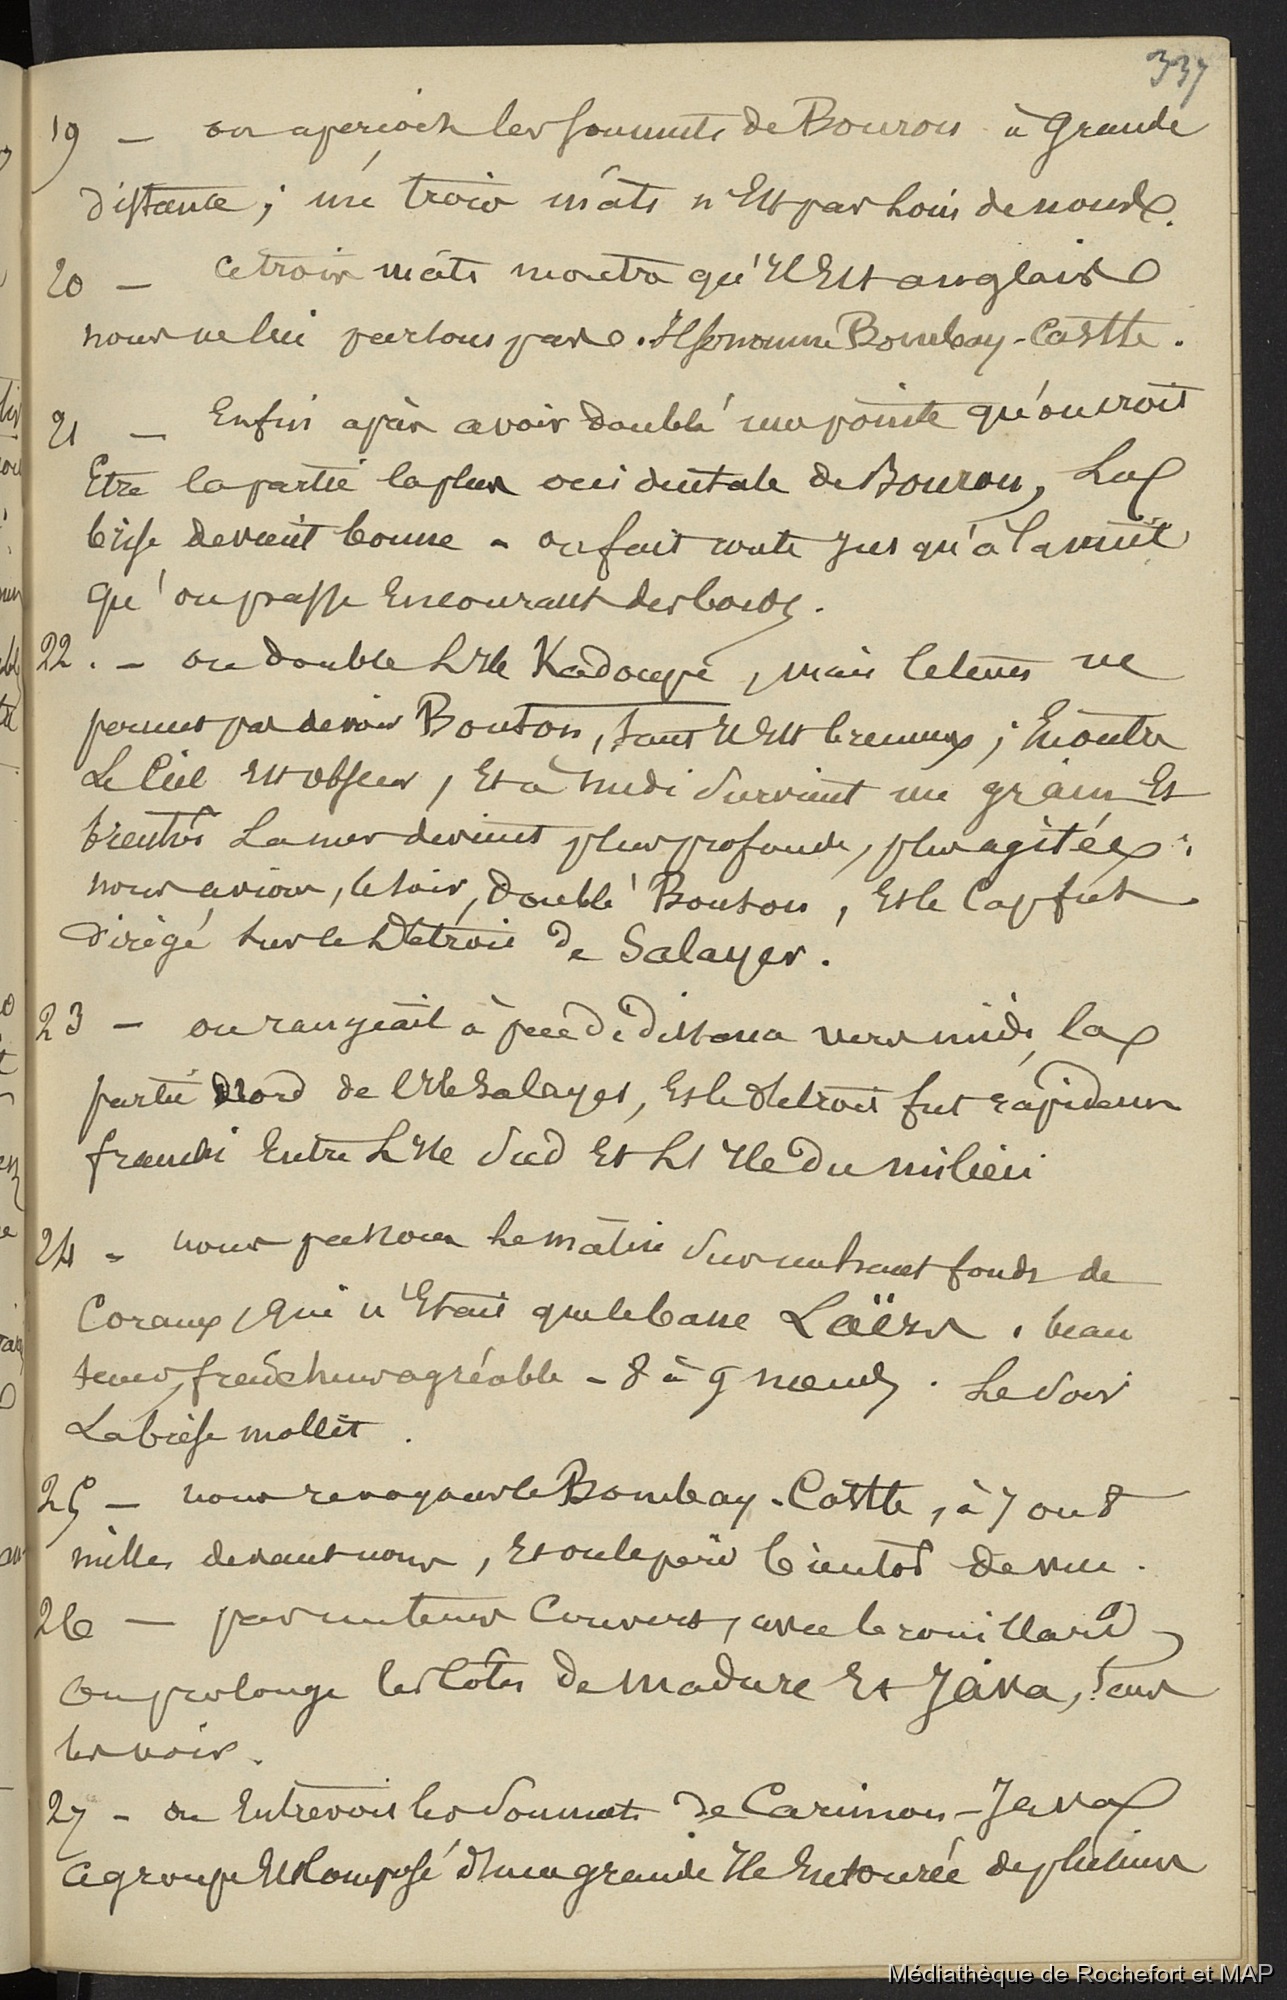 337
19 — on aperçoit les sommets de Bourou à grande
distance ; un trois mâts n'est pas loin de nous.
20 — ce trois mâts montra qu'il est anglais
nous ne lui parlons pas. Il se nomme Bombay-Castle.
21 — Enfin après avoir doublé une pointe qu'on croit
Etre la partie la plus occidentale de Bourou, La
brise devient bonne - on fait route jusqu'à la nuit
qu'on passe En courant des bords.
22. — on double L'Ile Kadoupi, mais le tems ne
permet pas de voir Bouton, tant il est brumeux ; En outre
Le Ciel est obscur, Et à midi survient un grain Et
bientôt La mer devient plus profonde, plus agitée ;
nous avions, le soir, doublé Bouton, Et le Cap fut
dirigé sur le Détroit de Salayer.
23 — on rangeait à peu de distance vers midi, la
partie Nord de l'Ile Salayer, Et le détroit fut rapidement
franchi Entre L'Ile Sud Et L'Ile du milieu
24 - nous passons Le matin sur un haut fonds de
Coraux, qui n'Etait que le banc Laërs. beau
tems, fraîcheur agréable - 8 à 9 nœuds. Le soir
La brise mollit.
25 — nous revoyons le Bombay-Castle, à 7 ou 8
milles devant nous, Et on le perd bientôt de vue.
26 — par un tems Couvert, avec brouillard,
on prolonge les Côtes de Madure Et Java, sans
les voir.
27 - on Entrevoit les sommets de Carimon-Java
ce groupe Est Composé d'une grande Ile Entourée de plusieurs
Médiathèque de Rochefort et MAP